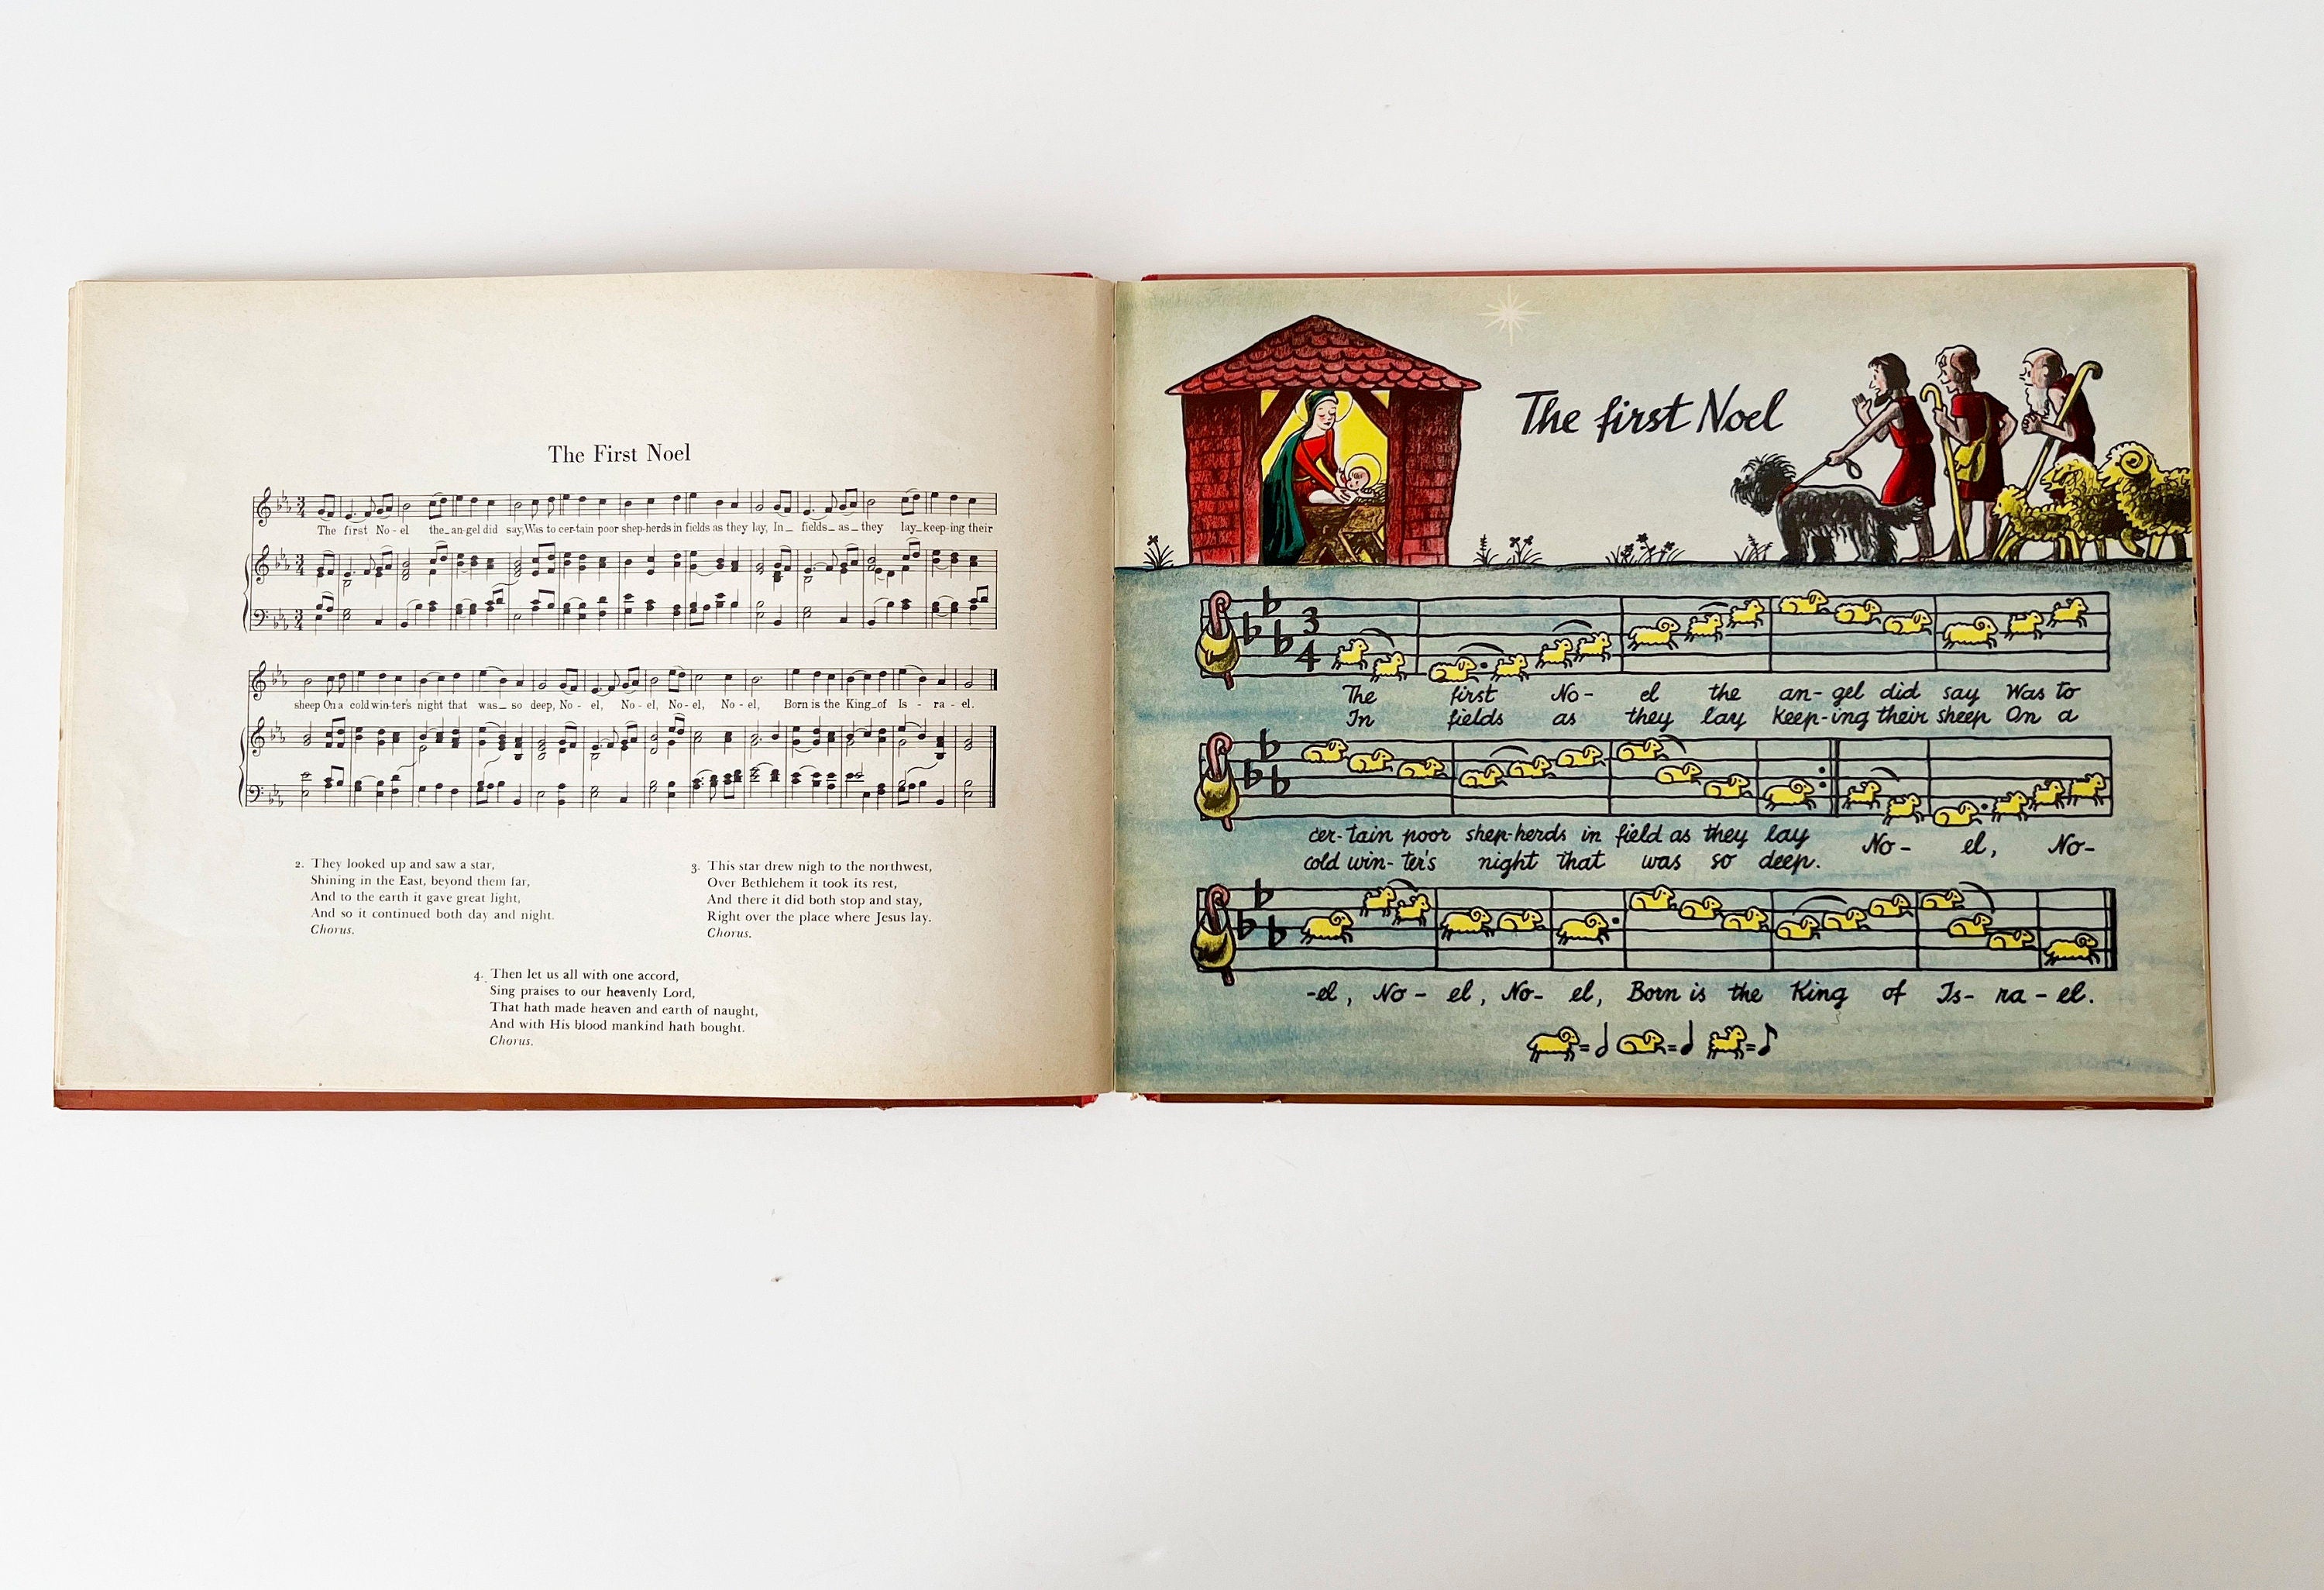 The First Noel
3
4
The first No - el the_an-gel did say,Was to cer-tain poor shep-herds in fields as they lay, In_ fields_ as_they lay_keep-ing their
3
4
3
4
sheep On a cold win-ter's night that was_ so deep, No - el, No - el, No - el, No - el, Born is the King_of Is - ra - el.
2. They looked up and saw a star,
Shining in the East, beyond them far,
And to the earth it gave great light,
And so it continued both day and night.
Chorus.
3. This star drew nigh to the northwest,
Over Bethlehem it took its rest,
And there it did both stop and stay,
Right over the place where Jesus lay.
Chorus.
4. Then let us all with one accord,
Sing praises to our heavenly Lord,
That hath made heaven and earth of naught,
And with His blood mankind hath bought.
Chorus.
The first Noel
3
4
The first No- el the an-gel did say Was to
In fields as they lay keep-ing their sheep On a
cer-tain poor shep-herds in field as they lay No- el, No-
cold win-ter's night that was so deep.
-el, No - el, No- el, Born is the King of Is- ra - el.